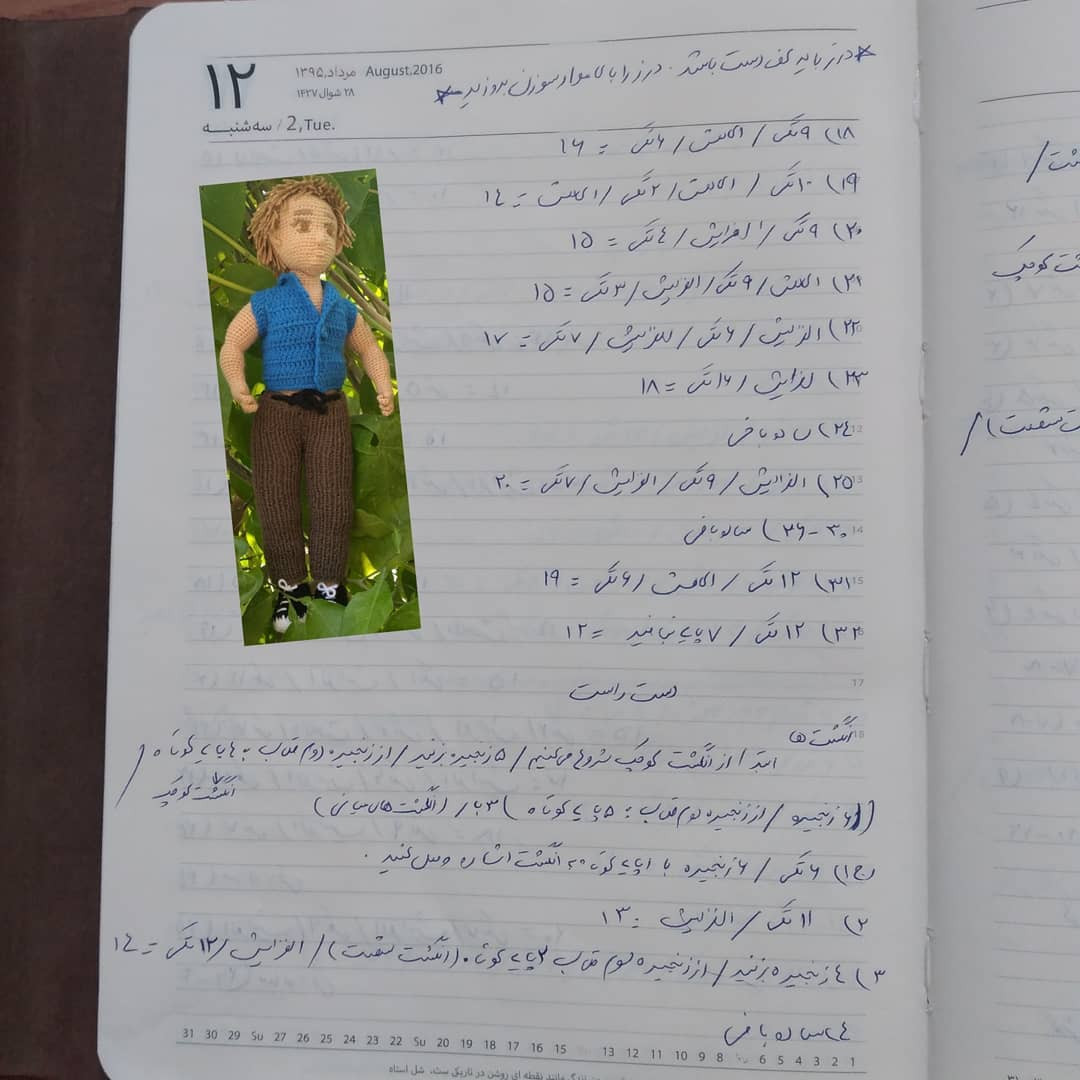 ۱۲
مرداد,۱۳۹۵ August,2016
۲۸ شوال ۱۴۳۷
سه شنبه / 2,Tue.
درز باید کف دست باشد. درز را با کاموا و سوزن بدوزید
۱۸) ۹ تک / کاهش / ۶ تک = ۱۶
۱۹) ۱۰ تک / کاهش / ۲ تک / کاهش = ۱۴
۲۰) ۹ تک / افزایش / ۴ تک = ۱۵
۲۱) کاهش / ۹ تک / افزایش / ۳ تک = ۱۵
۲۲) افزایش / ۶ تک / افزایش / ۷ تک = ۱۷
۲۳) افزایش / ۱۶ تک = ۱۸
۲۴) ساده بافی
۲۵) افزایش / ۹ تک / افزایش / ۷ تک = ۲۰
۲۶-۳۰) ساده بافی
۳۱) ۱۲ تک / کاهش / ۶ تک = ۱۹
۳۲) ۱۲ تک / ۷ پایه نبافید = ۱۲
دست راست
انگشت ها
ابتدا از انگشت کوچک شروع میکنیم / ۵ زنجیره بزنید / از زنجیره دوم قلاب به ۴ پایه کوتاه /
انگشت کوچک
(۶ زنجیره / از زنجیره دوم قلاب : ۵ پایه کوتاه) ۳ بار (انگشت های میانی)
رج ۱) ۶ تک / ۶ زنجیره با ۱ پایه کوتاه به انگشت اشاره وصل کنید.
۲) ۱۱ تک / افزایش = ۱۳
۳) ۴ زنجیره بزنید / از زنجیره دوم قلاب ۳ پایه کوتاه (انگشت شصت) / افزایش / ۱۲ تک = ۱۴
۴ ساده بافی
31 30 29 Su 27 26 25 24 23 22 Su 20 19 18 17 16 15 13 12 11 10 9 8 6 5 4 3 2 1
مانند نقطه ای روشن در تاریکی ست. شل استاه